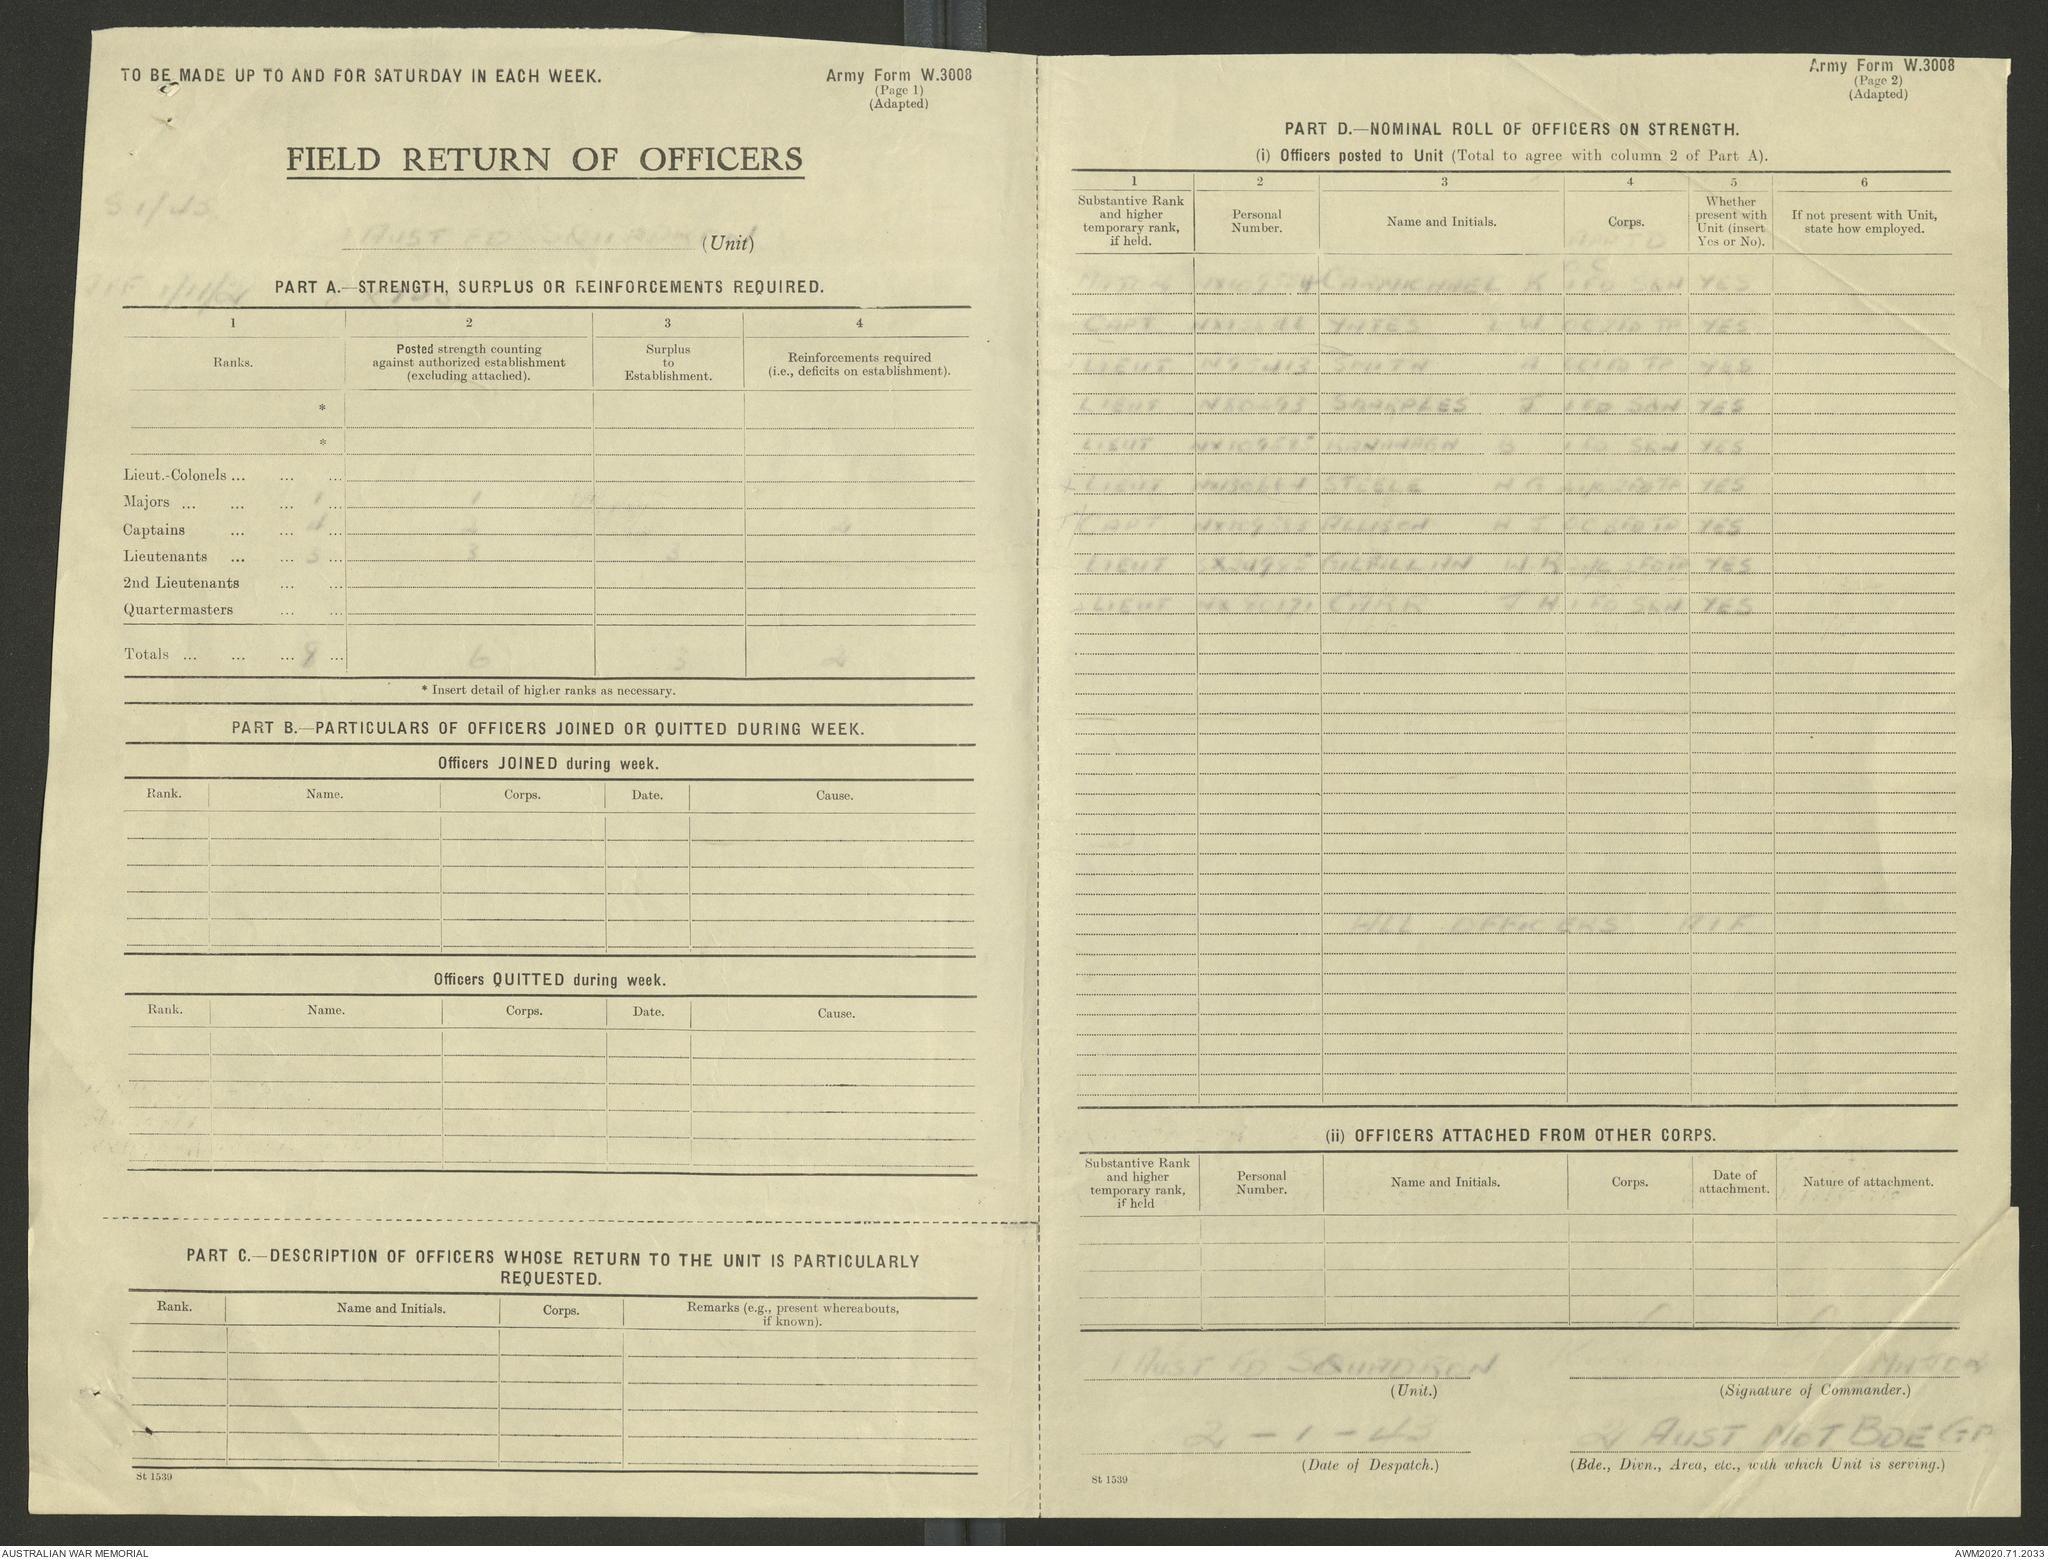 TO BE MADE UP TO AND FOR SATURDAY IN EACH WEEK.
Army Form W.3008
(Page 1)
(Adapted)
FIELD RETURN OF OFFICERS
AUST FD (Unit)
PART A.—STRENGTH, SURPLUS OR REINFORCEMENTS REQUIRED.
1 2 3 4
Ranks.
Posted strength counting against authorized establishment (excluding attached).
Surplus to Establishment.
Reinforcements required (i.e., deficits on establishment).
*
*
Lieut.-Colonels ... ... ...
Majors ... ... ... 1 ... 1
Captains ... ... 4 ... 2 2
Lieutenants ... ... ... 3 3
2nd Lieutenants ... ...
Quartermasters ... ...
Totals ... ... ... 9 ... 6 3 2
* Insert detail of higher ranks as necessary.
PART B.—PARTICULARS OF OFFICERS JOINED OR QUITTED DURING WEEK.
Officers JOINED during week.
Rank. Name. Corps. Date. Cause.
Officers QUITTED during week.
Rank. Name. Corps. Date. Cause.
PART C.—DESCRIPTION OF OFFICERS WHOSE RETURN TO THE UNIT IS PARTICULARLY
REQUESTED.
Rank. Name and Initials. Corps. Remarks (e.g., present whereabouts, if known).
St 1539
Army Form W.3008
(Page 2)
(Adapted)
PART D.—NOMINAL ROLL OF OFFICERS ON STRENGTH.
(i) Officers posted to Unit (Total to agree with column 2 of Part A).
1 2 3 4 5 6
Substantive Rank and higher temporary rank, if held.
Personal Number.
Name and Initials.
Corps.
Whether present with Unit (insert Yes or No).
If not present with Unit, state how employed.
CARMICHAEL K 1 FD SQN YES
CAPT YATES W YES
LIEUT SMITH A YES
LIEUT SHARPLES J 1 FD SQN YES
LIEUT KANAHAGN 1 FD SQN YES
LIEUT STEELE YES
CAPT ALLISON H J YES
LIEUT GILFILLAN W R YES
LIEUT CARR J H 1 FD SQN YES
ALL OFFICERS AIF
(ii) OFFICERS ATTACHED FROM OTHER CORPS.
Substantive Rank and higher temporary rank, if held
Personal Number.
Name and Initials.
Corps.
Date of attachment.
Nature of attachment.
1 AUST FD SQUADRON MAJOR
(Unit.) (Signature of Commander.)
2 - 1 - 43 2 AUST MOT BDE GP
(Date of Despatch.) (Bde., Divn., Area, etc., with which Unit is serving.)
St 1539
AUSTRALIAN WAR MEMORIAL
AWM2020.71.2033